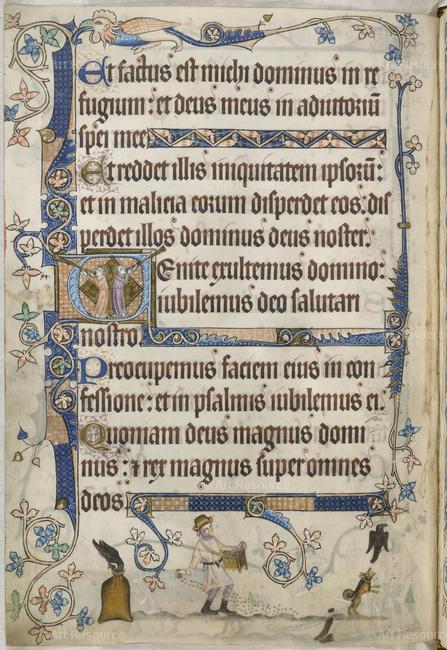 Et factus est michi dominus in re
fugium : et deus meus in adiutoriū
spei mee
Et reddet illis iniquitatem ipsorū :
et in malicia eorum disperdet eos : dis
perdet illos dominus deus noster.
Venite exultemus domino :
iubilemus deo salutari
nostro
Preocupemus faciem eius in con
fessione : et in psalmis iubilemus ei.
Quoniam deus magnus domi
nus : ⁊ rex magnus super omnes
deos
94
© Art Resource
© Art Resource
© Art Resource